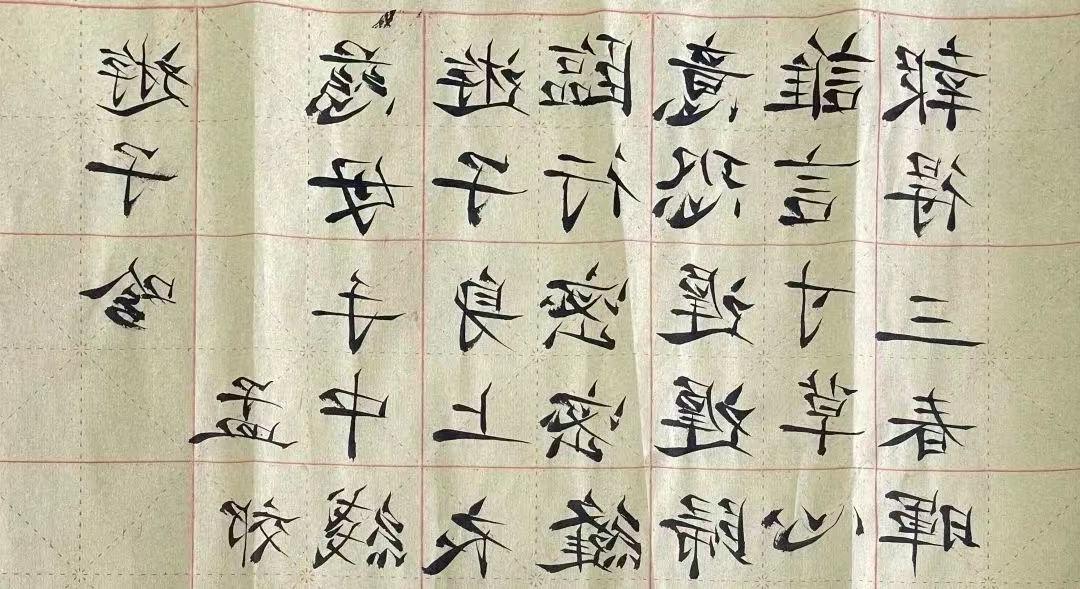 游子吟
孟郊
慈母手中線
遊子身上衣
臨行密密縫
意恐遲遲歸
誰言寸草心
報得三春暉